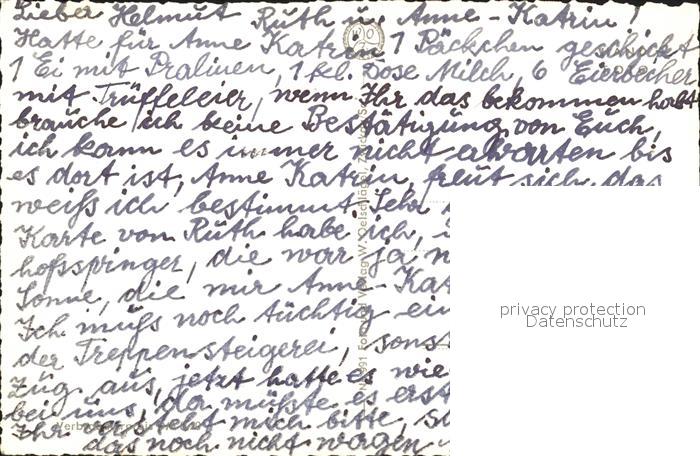 Lieber Helmut Ruth u. Anne-Katrin!
Hatte für Anne Katrin 1 Päckchen geschickt
1 Ei mit Pralinen, 1 kl. Dose Milch, 6 Eierbecher
mit Trüffeleier, wenn Ihr das bekommen habt
brauche ich keine Bestätigung von Euch,
ich kann es immer nicht abwarten bis
es dort ist, Anne Katrin, freut sich, das
weiß ich bestimmt. Sehr
Karte von Ruth habe ich,
hofsspringer, die war ja
Sonne, die mir Anne-Kat
Ich muß noch tüchtig ein
der Treppensteigerei, sonst
Zug aus, jetzt hatte es wie
bei uns, da müßte es erst
Ihr versteht mich bitte,
das noch nicht wagen
privacy protection
Datenschutz